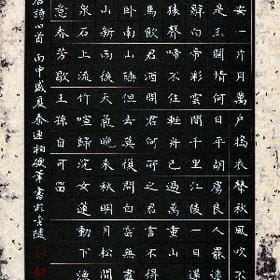 安一片月萬戶搗衣聲秋風吹不
是玉關情何日平胡虜良人罷遠
辭白帝彩雲間千里江陵一日還
猿聲啼不住輕舟已過萬重山
馬飲君酒問君何所之君言不得
臥南山陲但去莫復問白雲無盡
山新雨後天氣晚來秋明月松間
泉石上流竹喧歸浣女蓮動下漁
意春芳歇王孫自可留
詩四首 丙申盛夏秦迪柏硬筆書於金陵